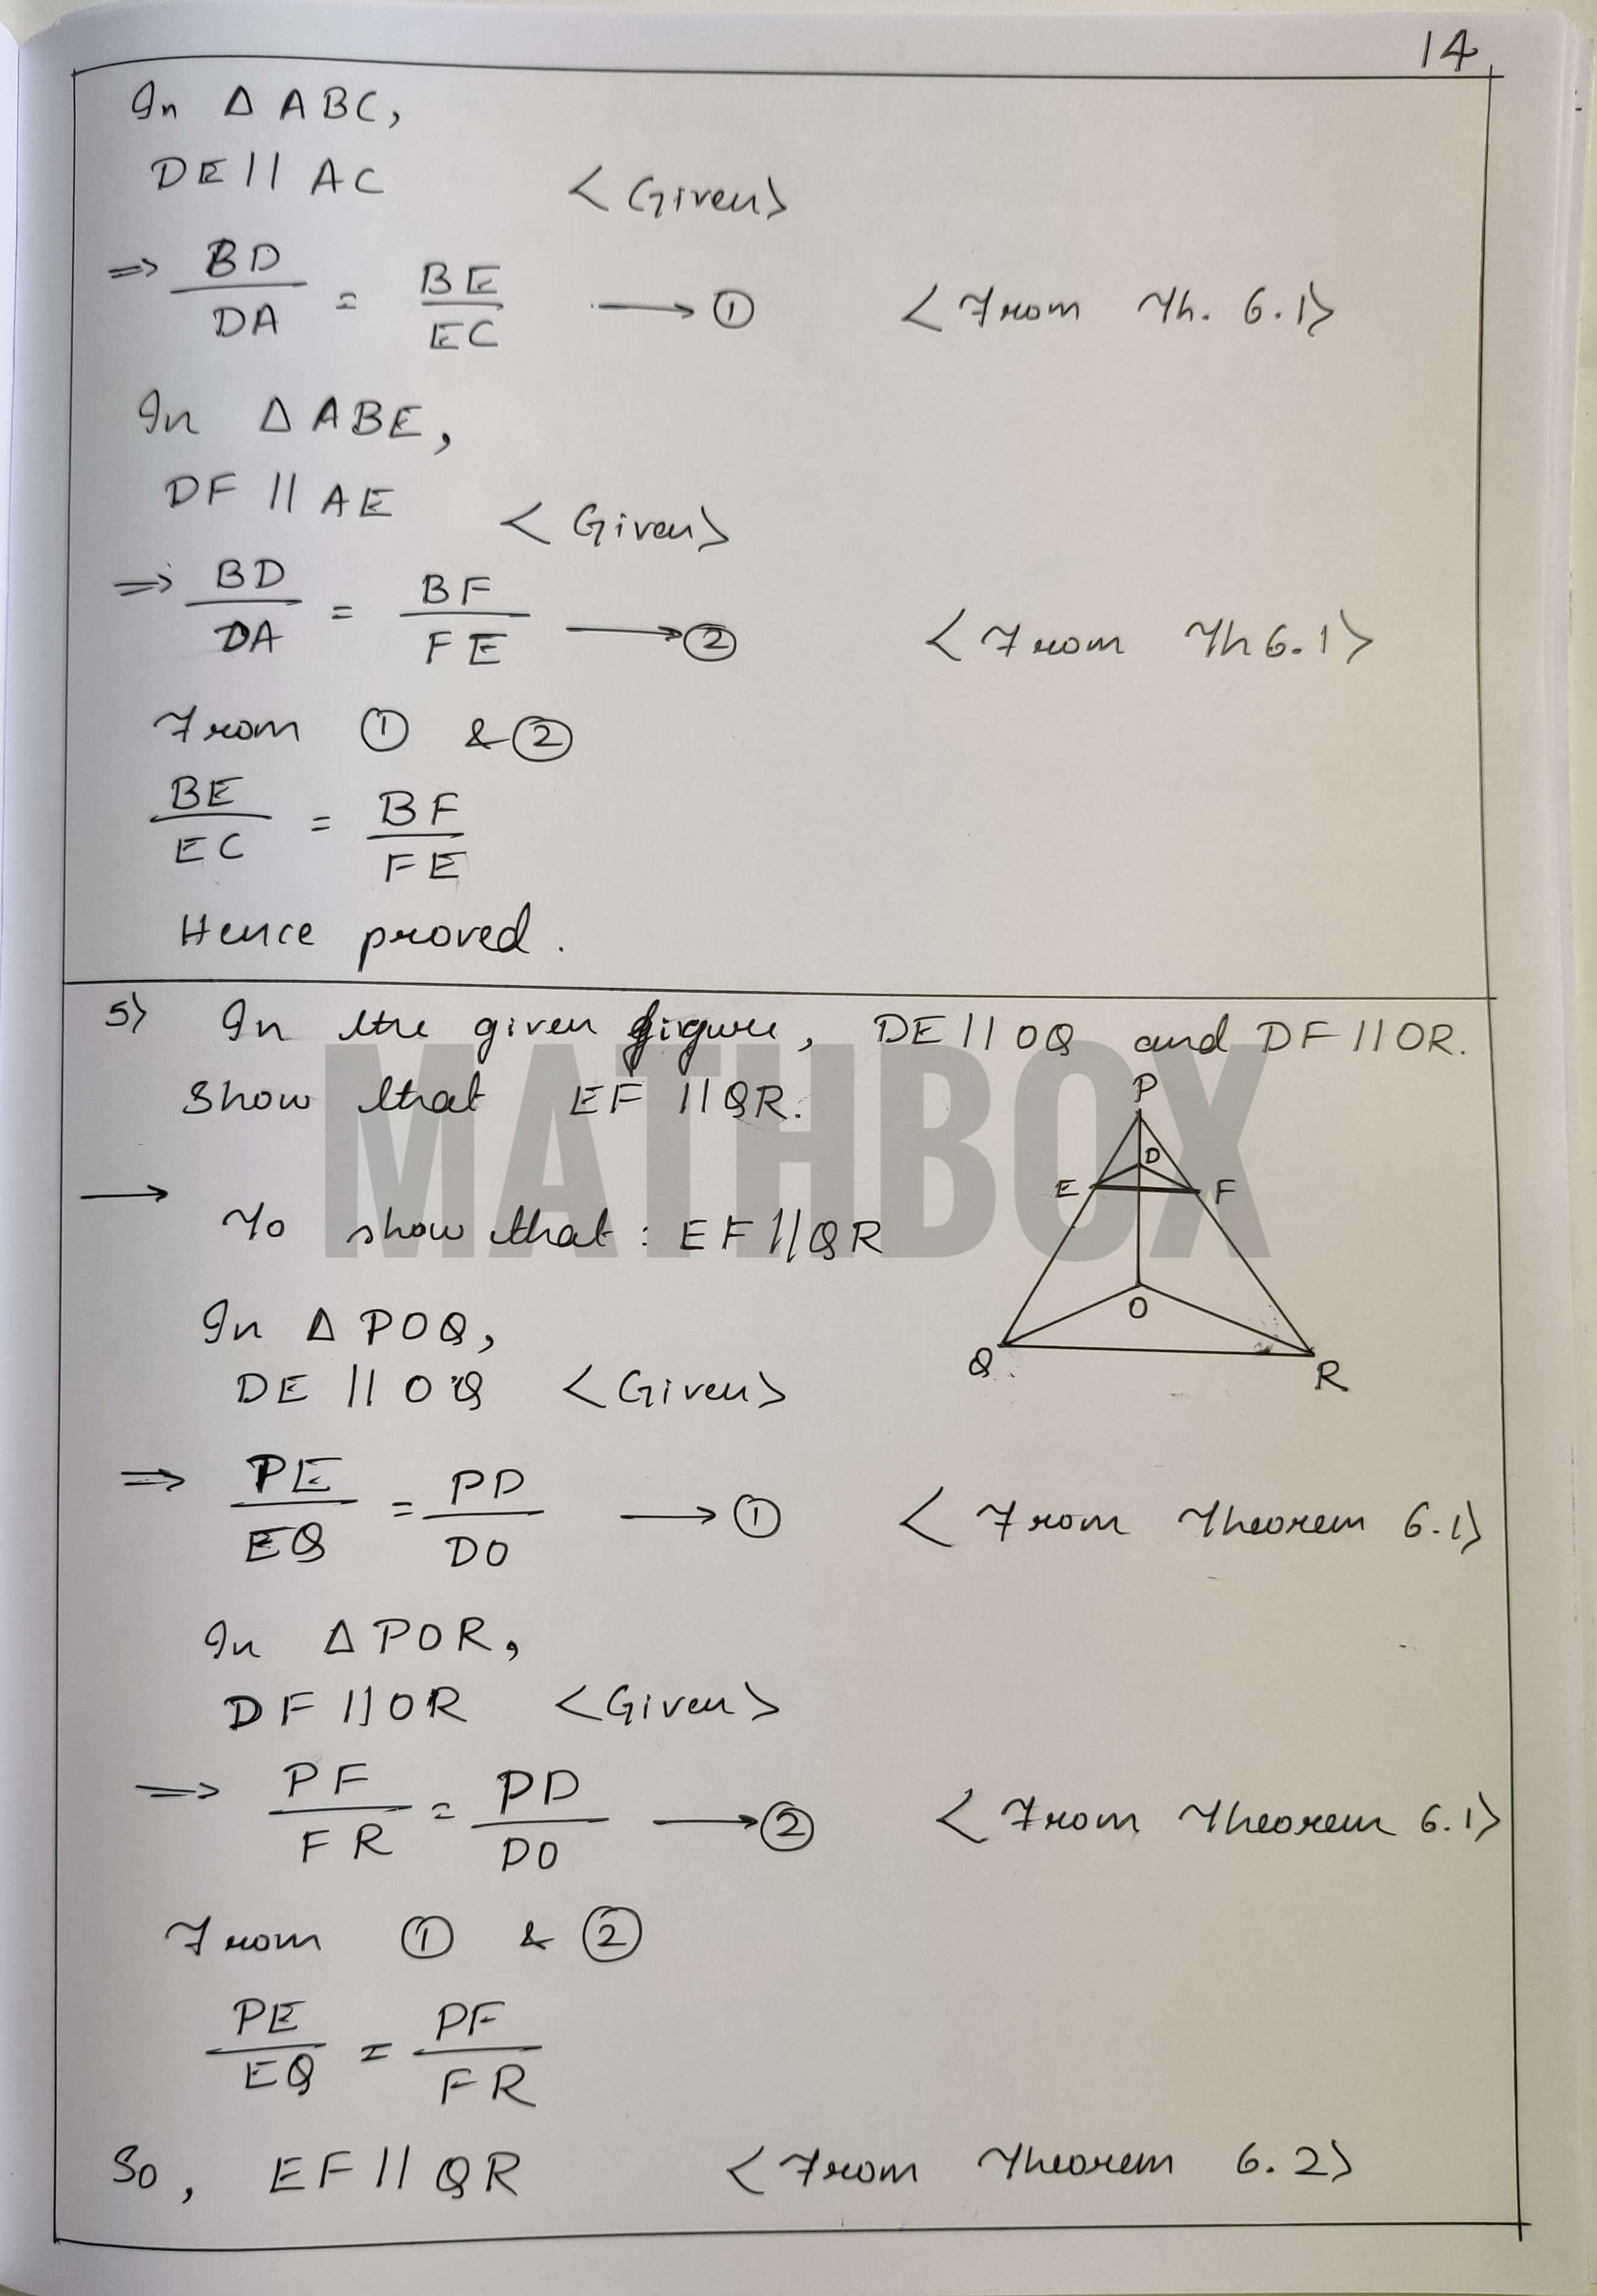 14
In Δ ABC,
DE || AC <Given>
⇒ BD/DA = BE/EC → ① <From Th. 6.1>
In Δ ABE,
DF || AE <Given>
⇒ BD/DA = BF/FE → ② <From Th 6.1>
From ① & ②
BE/EC = BF/FE
Hence proved.
5) In the given figure, DE || OQ and DF || OR.
Show that EF || QR.
→ To show that : EF || QR
In Δ POQ,
DE || OQ <Given>
⇒ PE/EQ = PD/DO → ① <From Theorem 6.1>
In Δ POR,
DF || OR <Given>
⇒ PF/FR = PD/DO → ② <From Theorem 6.1>
From ① & ②
PE/EQ = PF/FR
So, EF || QR <From Theorem 6.2>
P
D
E F
O
Q R
MATHBOX